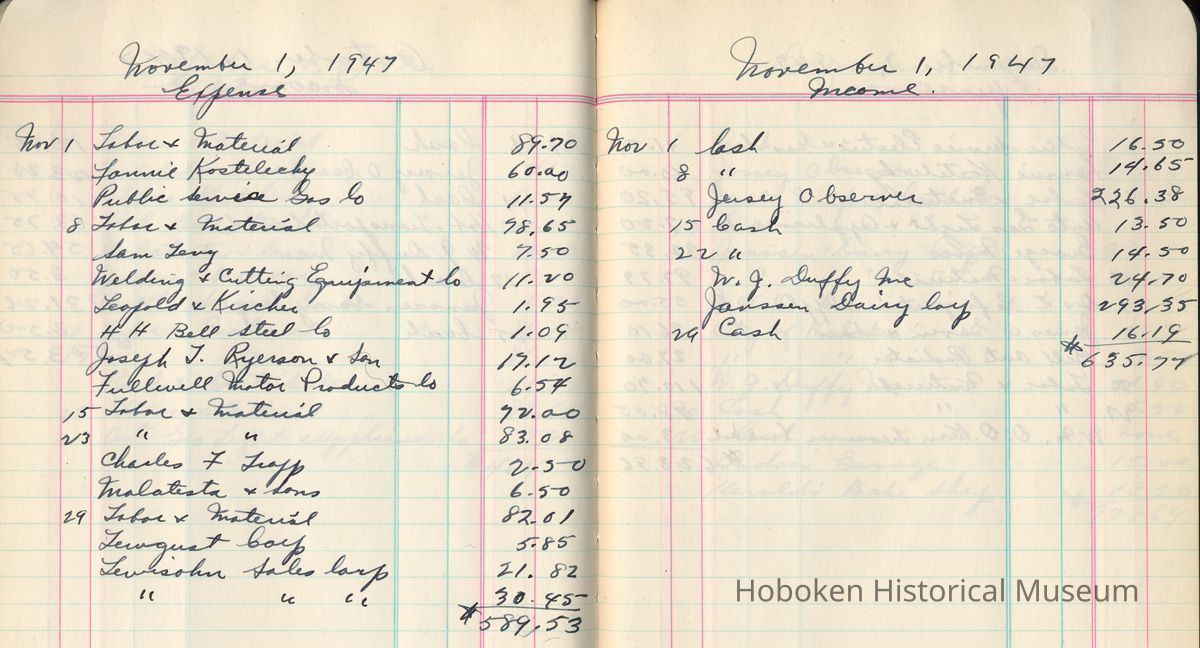 November 1, 1947
Expense
Nov 1 Labor & Material 89.70
Fannie Kostelecky 60.00
Public Service Gas Co 11.57
8 Labor & Material 78.65
Sam Levy 7.50
Welding & Cutting Equipment Co 11.20
Leopold & Kircher 1.95
H H Bell Steel Co 1.09
Joseph T. Ryerson & Son 17.12
Fullwell Motor Products Co 6.54
15 Labor & Material 72.00
23 " " 83.08
Charles F Trapp 2.50
Malatesta & Sons 6.50
29 Labor & Material 82.01
Corp 5.85
Lewisohn Sales Corp 21.82
" " " 30.45
$589.53
November 1, 1947
Income.
Nov 1 Cash 16.50
8 " 14.65
Jersey Observer 226.38
15 Cash 13.50
22 " 14.50
W. J. Duffy Inc 24.70
Janssen Dairy Corp 293.35
29 Cash 16.19
$635.77
Hoboken Historical Museum